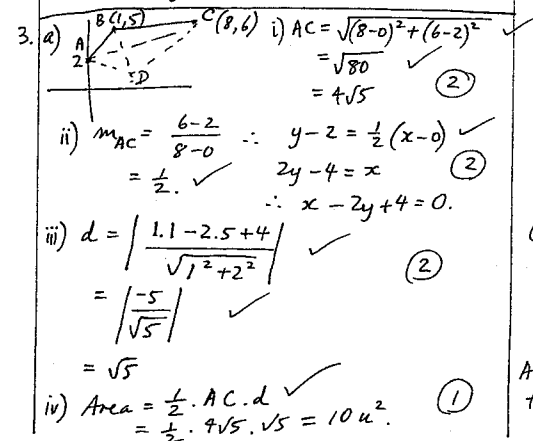 3. a) B(1,5) C(8,6) i) AC = √((8-0)² + (6-2)²) ✓
A
2
D
= √80 ✓
= 4√5 (2)
ii) m_AC = (6-2)/(8-0) ∴ y-2 = ½(x-0) ✓
= ½. ✓ 2y-4 = x (2)
∴ x-2y+4=0.
iii) d = |(1.1-2.5+4)/√(1²+2²)| ✓ (2)
= |-5/√5| ✓
= √5
iv) Area = ½. AC. d ✓ (1)
= ½. 4√5. √5 = 10u².
A